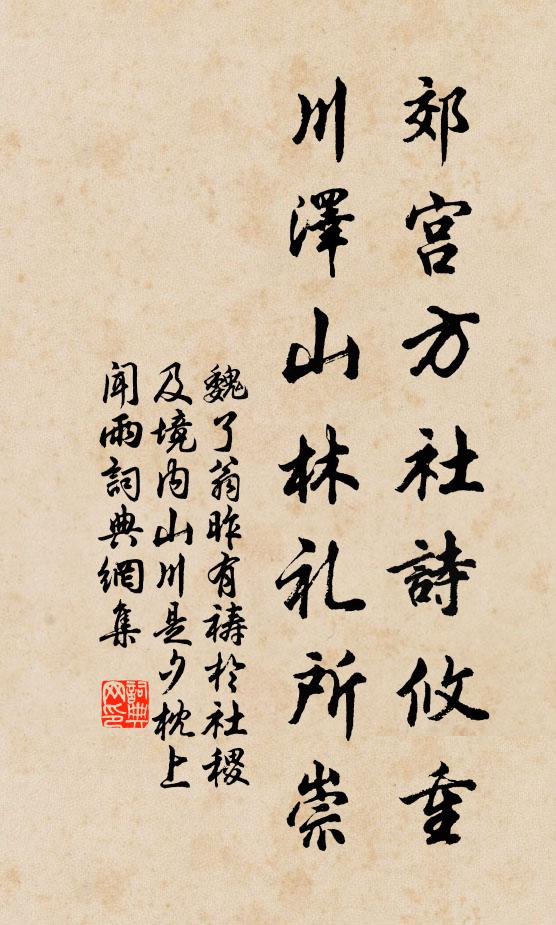 郊宫方社詩攸重
川澤山林礼所崇
魏了翁昨有禱於社稷
及境内山川是夕枕上
闻雨詞典網集
詞典网印